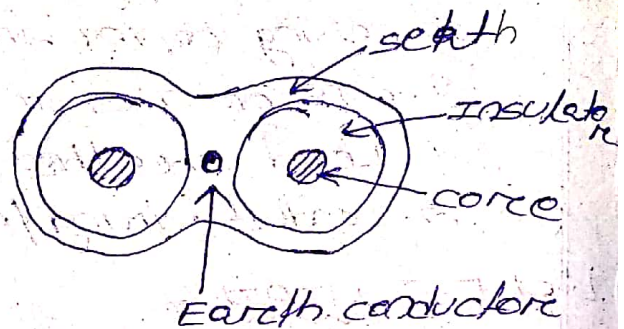 seath
Insulato
r
core
Earth conductor